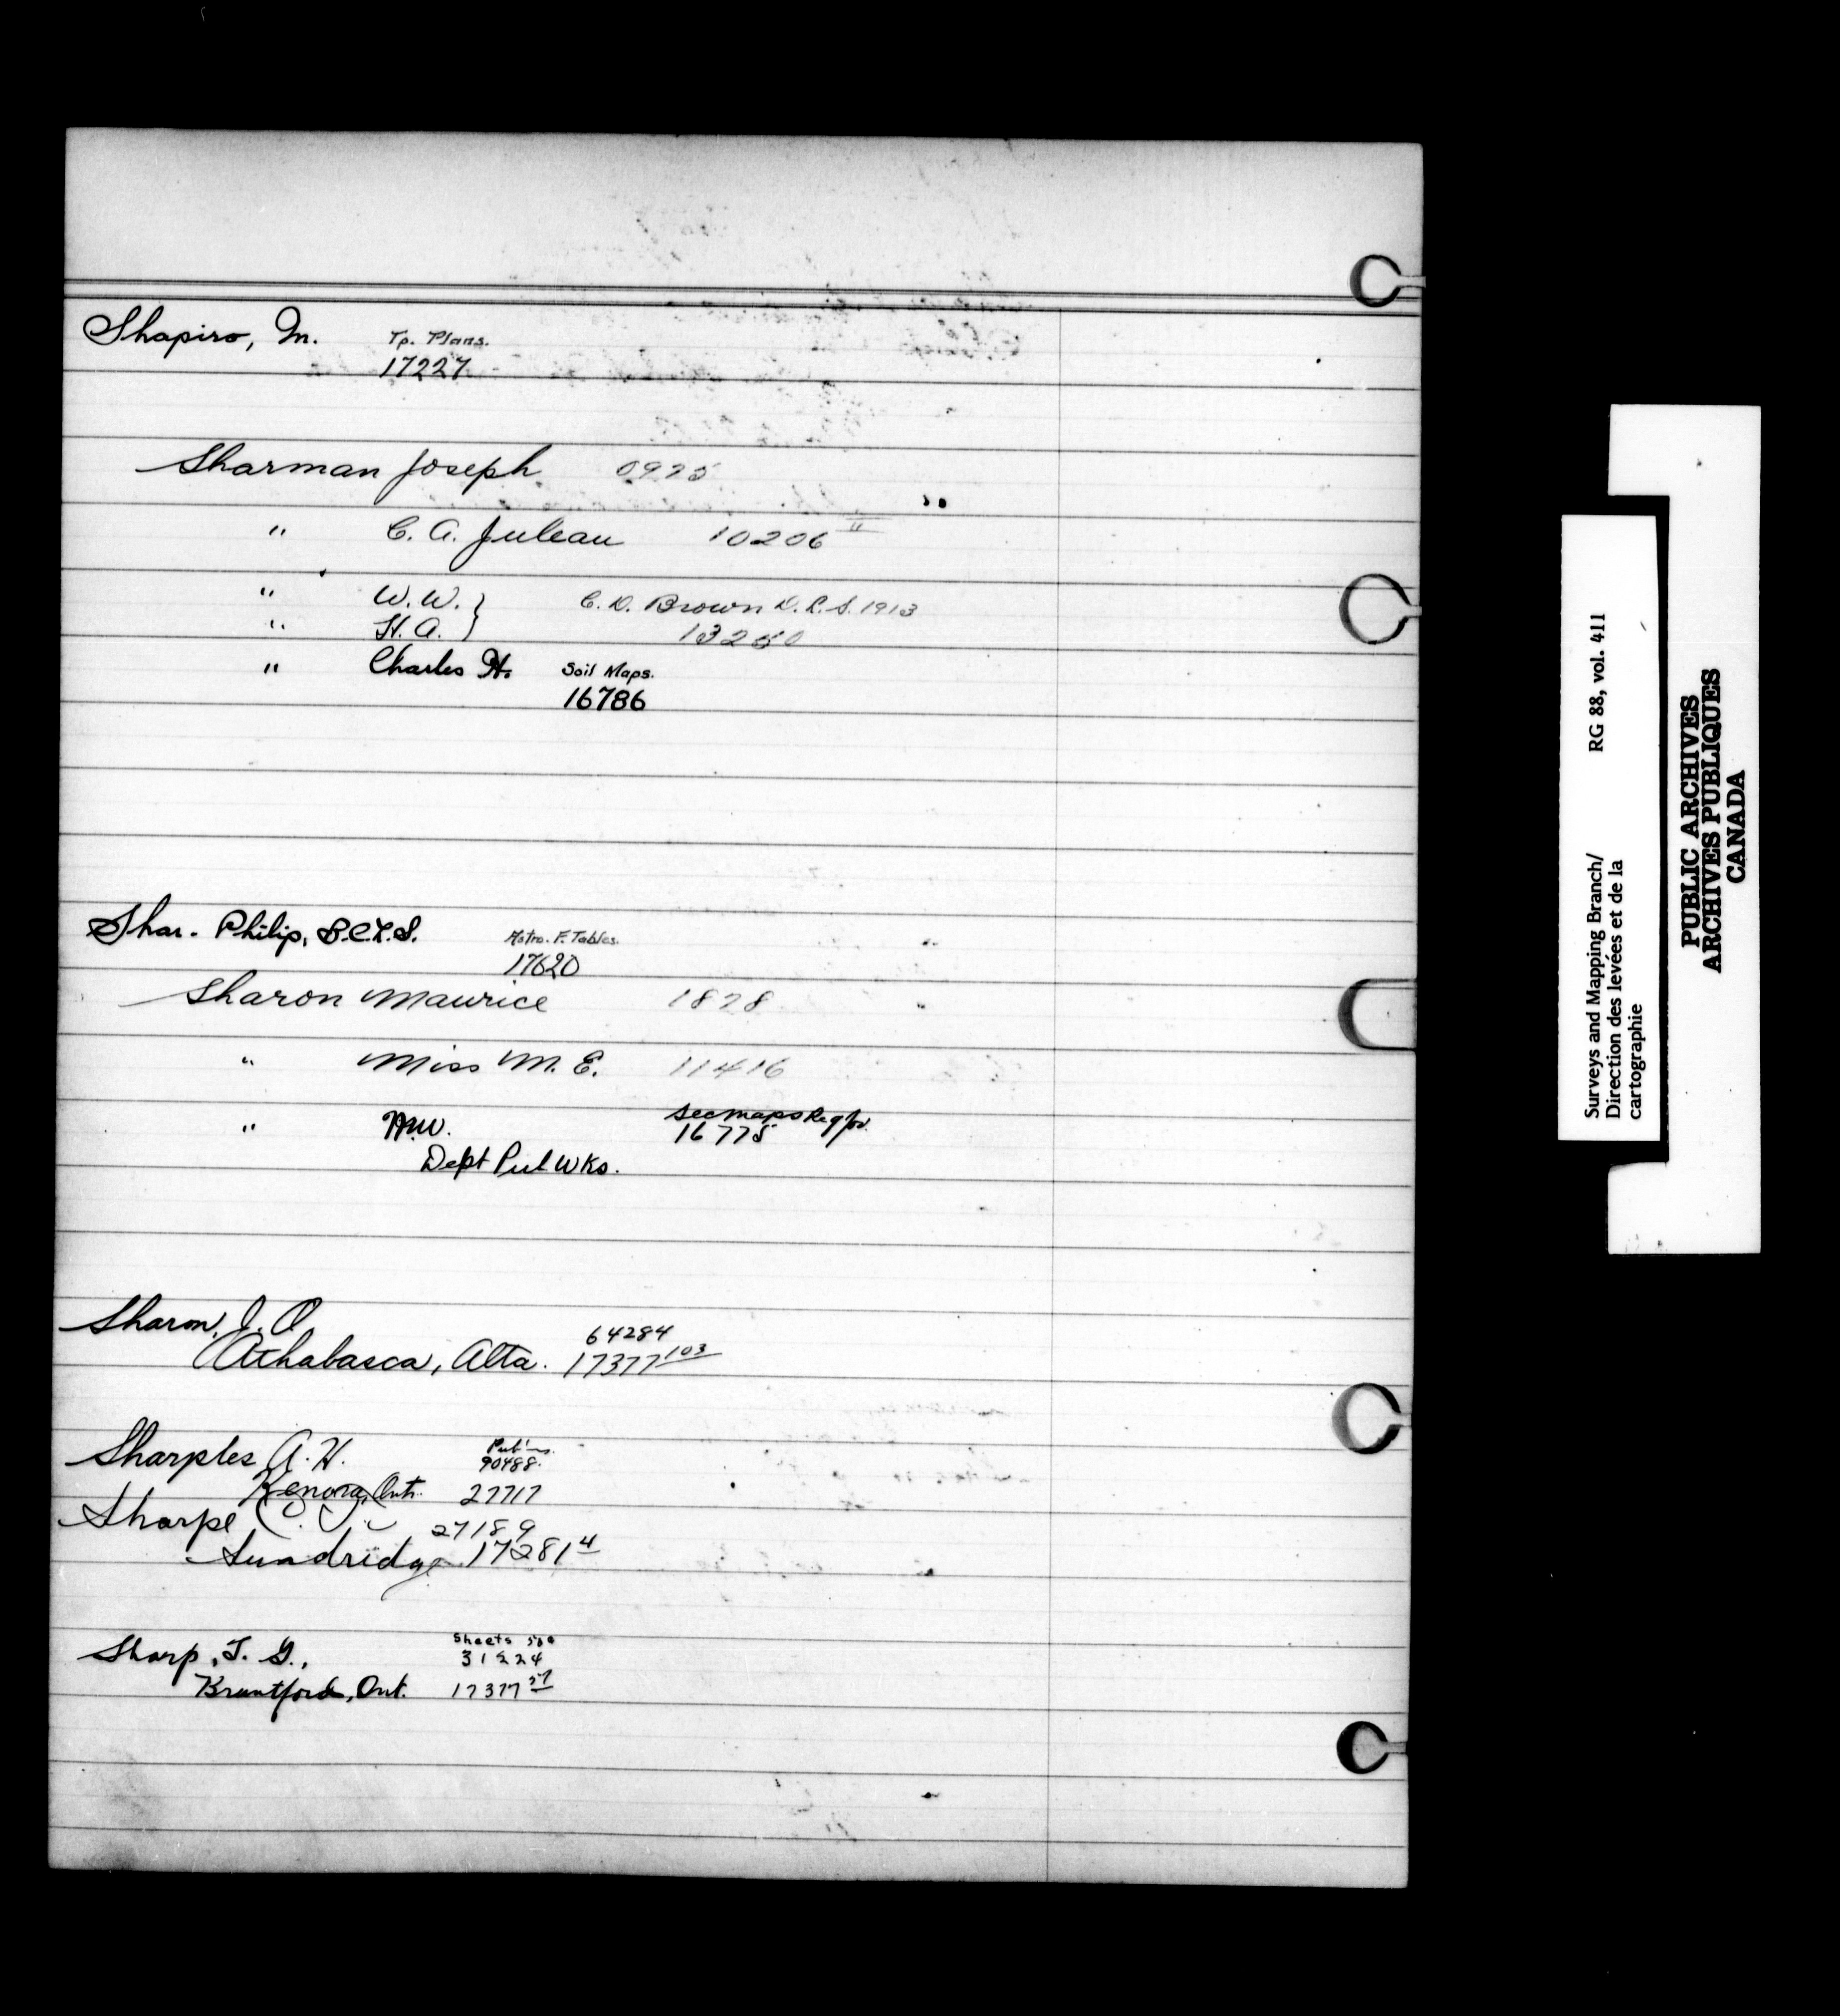 Shapiro, M. Tp. Plans.
17227
Sharman Joseph 0925
" C. A. Juleau 10206 11
" W. W. } C. D. Brown D. L. S. 1913
" H. A. } 13250
" Charles H. Soil Maps.
16786
Shar. Philip, B.C.L.S. Astro. F. Tables.
17620
Sharon Maurice 1828
" Miss M. E. 11416
" M.W. Sec maps Reg for
16775
Dept Pub Wks.
Sharon, J. O. 64284
Athabasca, Alta. 17377 103
Sharples A. H. Pub'ns.
90488
Kenora, Ont. 27717
Sharpe C. 27189
Sundridge 17281 4
Sharp, T. G., Sheets
31224
Brantford, Ont. 17377 57
Surveys and Mapping Branch/ RG 88, vol. 411
Direction des levées et de la
cartographie
PUBLIC ARCHIVES
ARCHIVES PUBLIQUES
CANADA